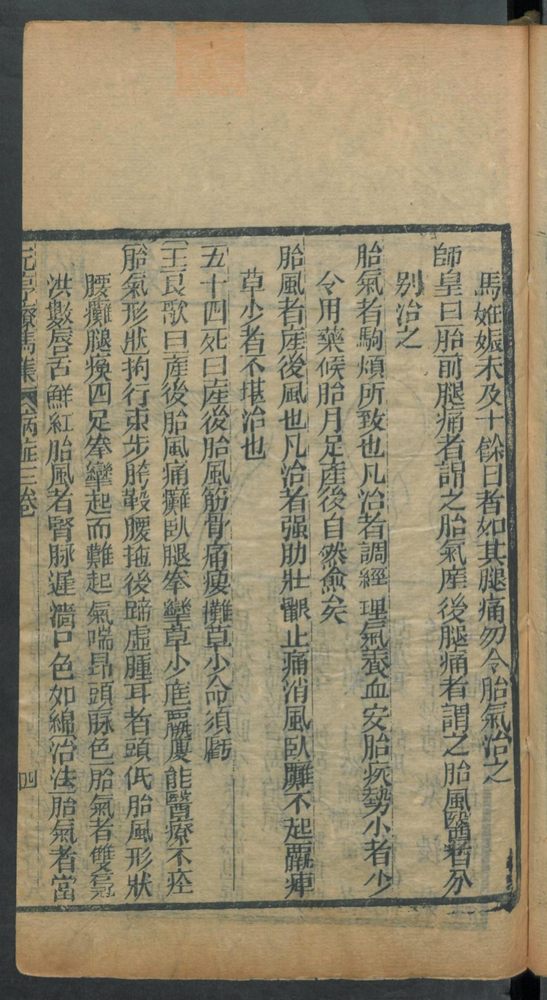 馬妊娠未及十餘日者如其腿痛勿令胎氣治之
師皇曰胎前腿痛者謂之胎氣產後腿痛者謂之胎風醫者分
别治之
胎氣者駒煩所致也凡治者調經理氣養血安胎疾勢小者少
令用藥候胎月足產後自然愈矣
胎風者產後風也凡治者强肋壯骽止痛消風臥難不起羸瘦
草少者不堪治也
五十四死曰產後胎風筋骨痛瘦攤草少命須虧
王良歌曰產後胎風痛癱臥腿拳攣草少尫羸瘦能醫療不痊
胎氣形狀拘行束步胯䩺腰拖後蹄虛腫耳耷頭低胎風形狀
腰癱腿瘓四足拳攣起而難起氣喘昂頭脉色胎氣者雙鳧
洪數唇舌鮮紅胎風者腎脉遲濇口色如綿治法胎氣者當
元亨療馬集 病症三卷 四